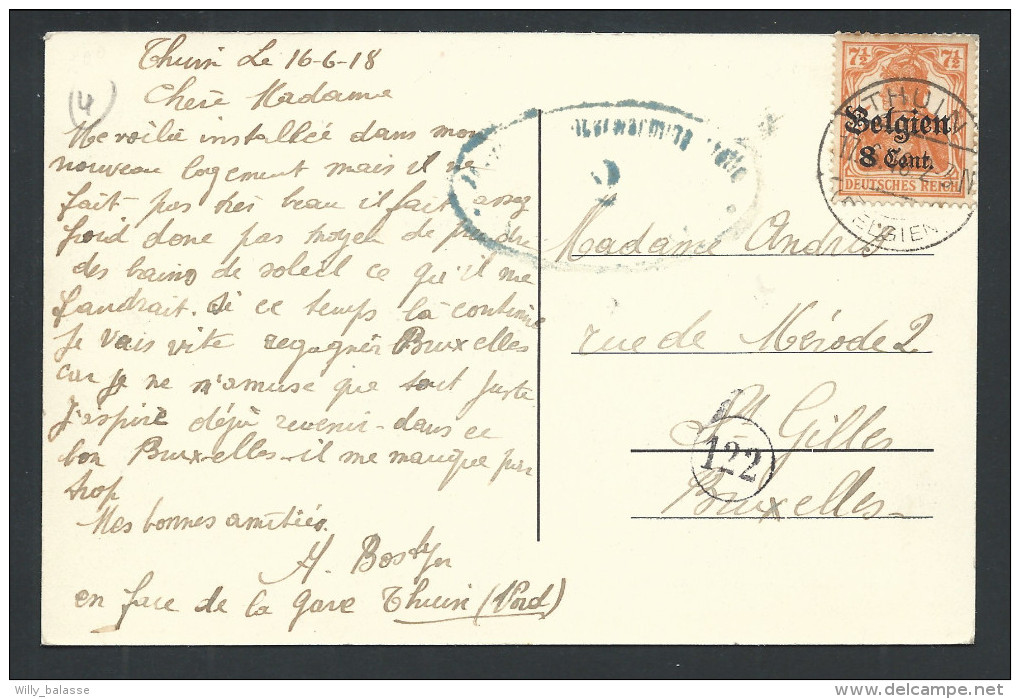 Thuin Le 16-6-18
(4)
Chère Madame
Me voilà installée dans mon
nouveau logement mais il ne
fait pas très beau il fait assez
froid donc pas moyen de prendre
des bains de soleil ce qu'il me
faudrait. Si ce temps là continue
je vais vite regagner Bruxelles
car je ne m'amuse que tout juste
J'aspire déjà revenir dans ce
bon Bruxelles il me manque par
trop
Mes bonnes amitiés.
en face de la gare Thuin (Nord)
7½ 7½
Belgien
8 Cent.
DEUTSCHES REICH
THUIN
(BELGIEN)
2
Madame Andrey
rue de Mérode 2
St Gilles
122
Bruxelles
Willy_balasse
delcampe.net